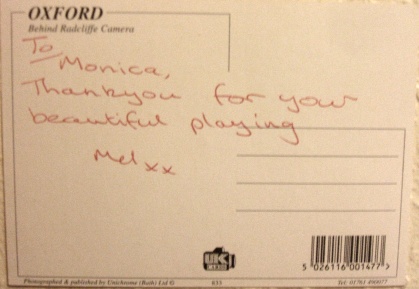 OXFORD
Behind Radcliffe Camera
To
Monica,
Thankyou for your
beautiful playing
Mel xx
UK
5 026116 001477
Photographed & published by Unichrome (Bath) Ltd ©
Tel: 01761